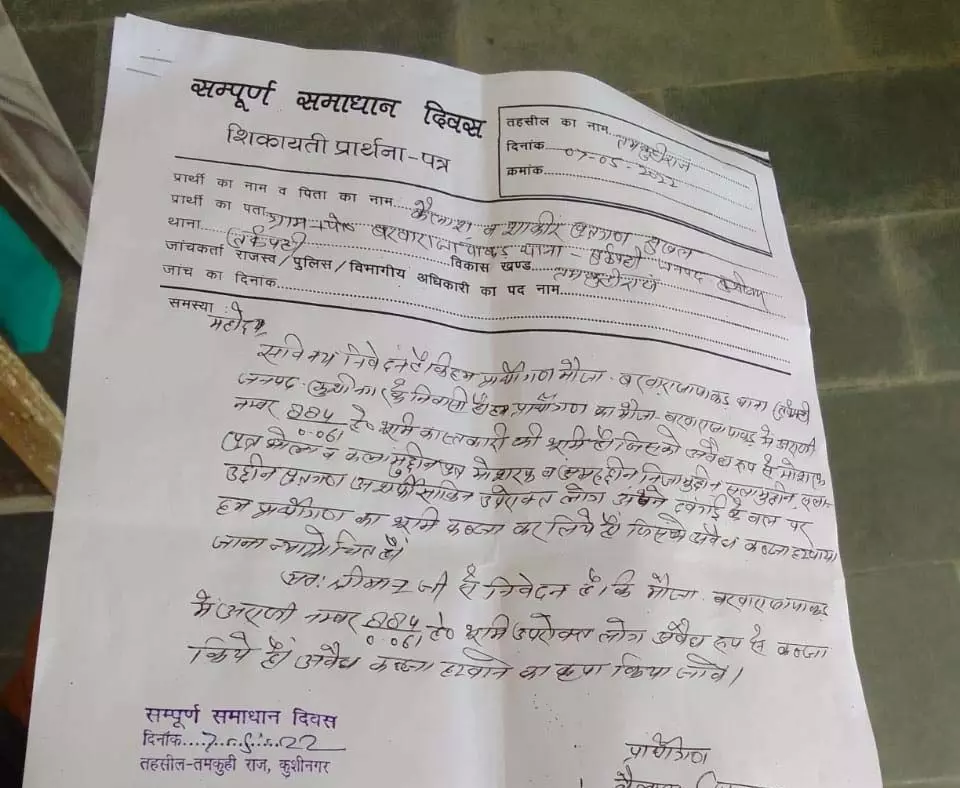 सम्पूर्ण समाधान दिवस
शिकायती प्रार्थना-पत्र
तहसील का नाम तमकुहीराज
दिनांक 07-05-2022
क्रमांक
प्रार्थी का नाम व पिता का नाम कैलाश व शाकीर पुत्रगण
प्रार्थी का पता ग्राम पो० बरवाराजापाकड़ थाना - तुर्कपट्टी जनपद कुशीनगर
थाना तुर्कपट्टी विकास खण्ड तमकुहीराज
जांचकर्ता राजस्व/पुलिस/विभागीय अधिकारी का पद नाम
जांच का दिनांक
समस्या :
महोदय,
सविनय निवेदन है कि हम प्रार्थीगण मौजा - बरवाराजापाकड़ थाना तुर्कपट्टी
जनपद - कुशीनगर के निवासी हैं। हम प्रार्थीगण का मौजा - बरवाराजापाकड़ में अराजी
नम्बर 884/0.061 हे० भूमि कास्तकारी की भूमि है जिसको अवैध रूप से मोशरफ
पुत्र व पुत्र मोशरफ व निजामुद्दीन
उद्दीन पुत्रगण अशर्फी साकिन उपरोक्त लोग अपने दबंगई के बल पर
हम प्रार्थीगण का भूमि कब्जा कर लिये हैं। जिससे अवैध कब्जा हटवाया
जाना न्यायोचित है।
अतः श्रीमान जी से निवेदन है कि मौजा - बरवाराजापाकड़
में अराजी नम्बर 884/0.061 हे० भूमि उपरोक्त लोग अवैध रूप से कब्जा
किये हैं। अवैध कब्जा हटवाने का कृपा किया जावे।
सम्पूर्ण समाधान दिवस
दिनांक 7.5.22
तहसील-तमकुही राज, कुशीनगर
प्रार्थीगण
कैलाश